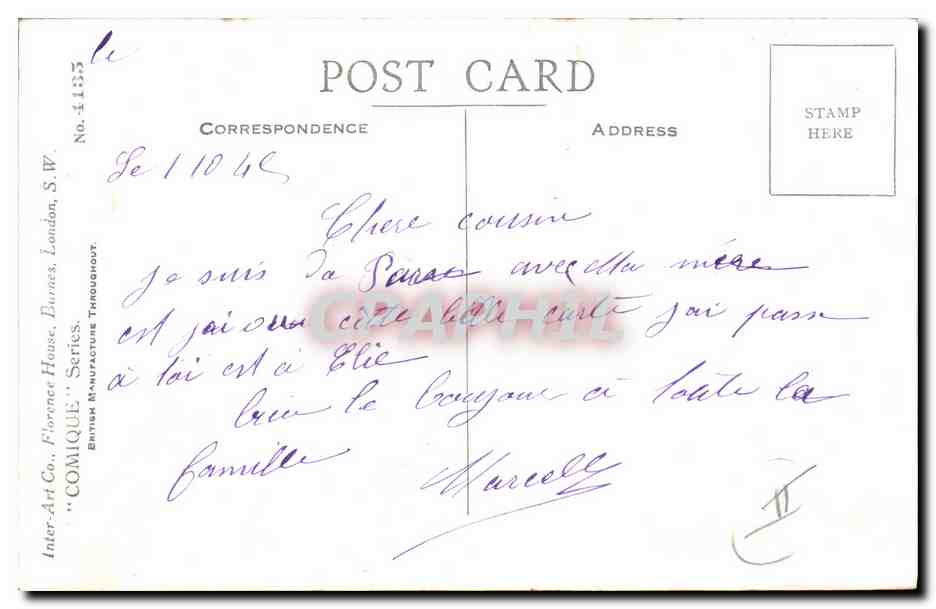 POST CARD
CORRESPONDENCE
ADDRESS
STAMP
HERE
le
No. 4185
Inter-Art Co., Florence House, Barnes, London, S.W.
"COMIQUE" Series.
BRITISH MANUFACTURE THROUGHOUT.
Le 1 10 45
Chere cousin
je suis à Paris avec Ma mère
est j'ai cette belle carte j'ai pass
à toi est à Elie
bien le bonjour à toute la
famille
Marcelle
GRAPHIL
II